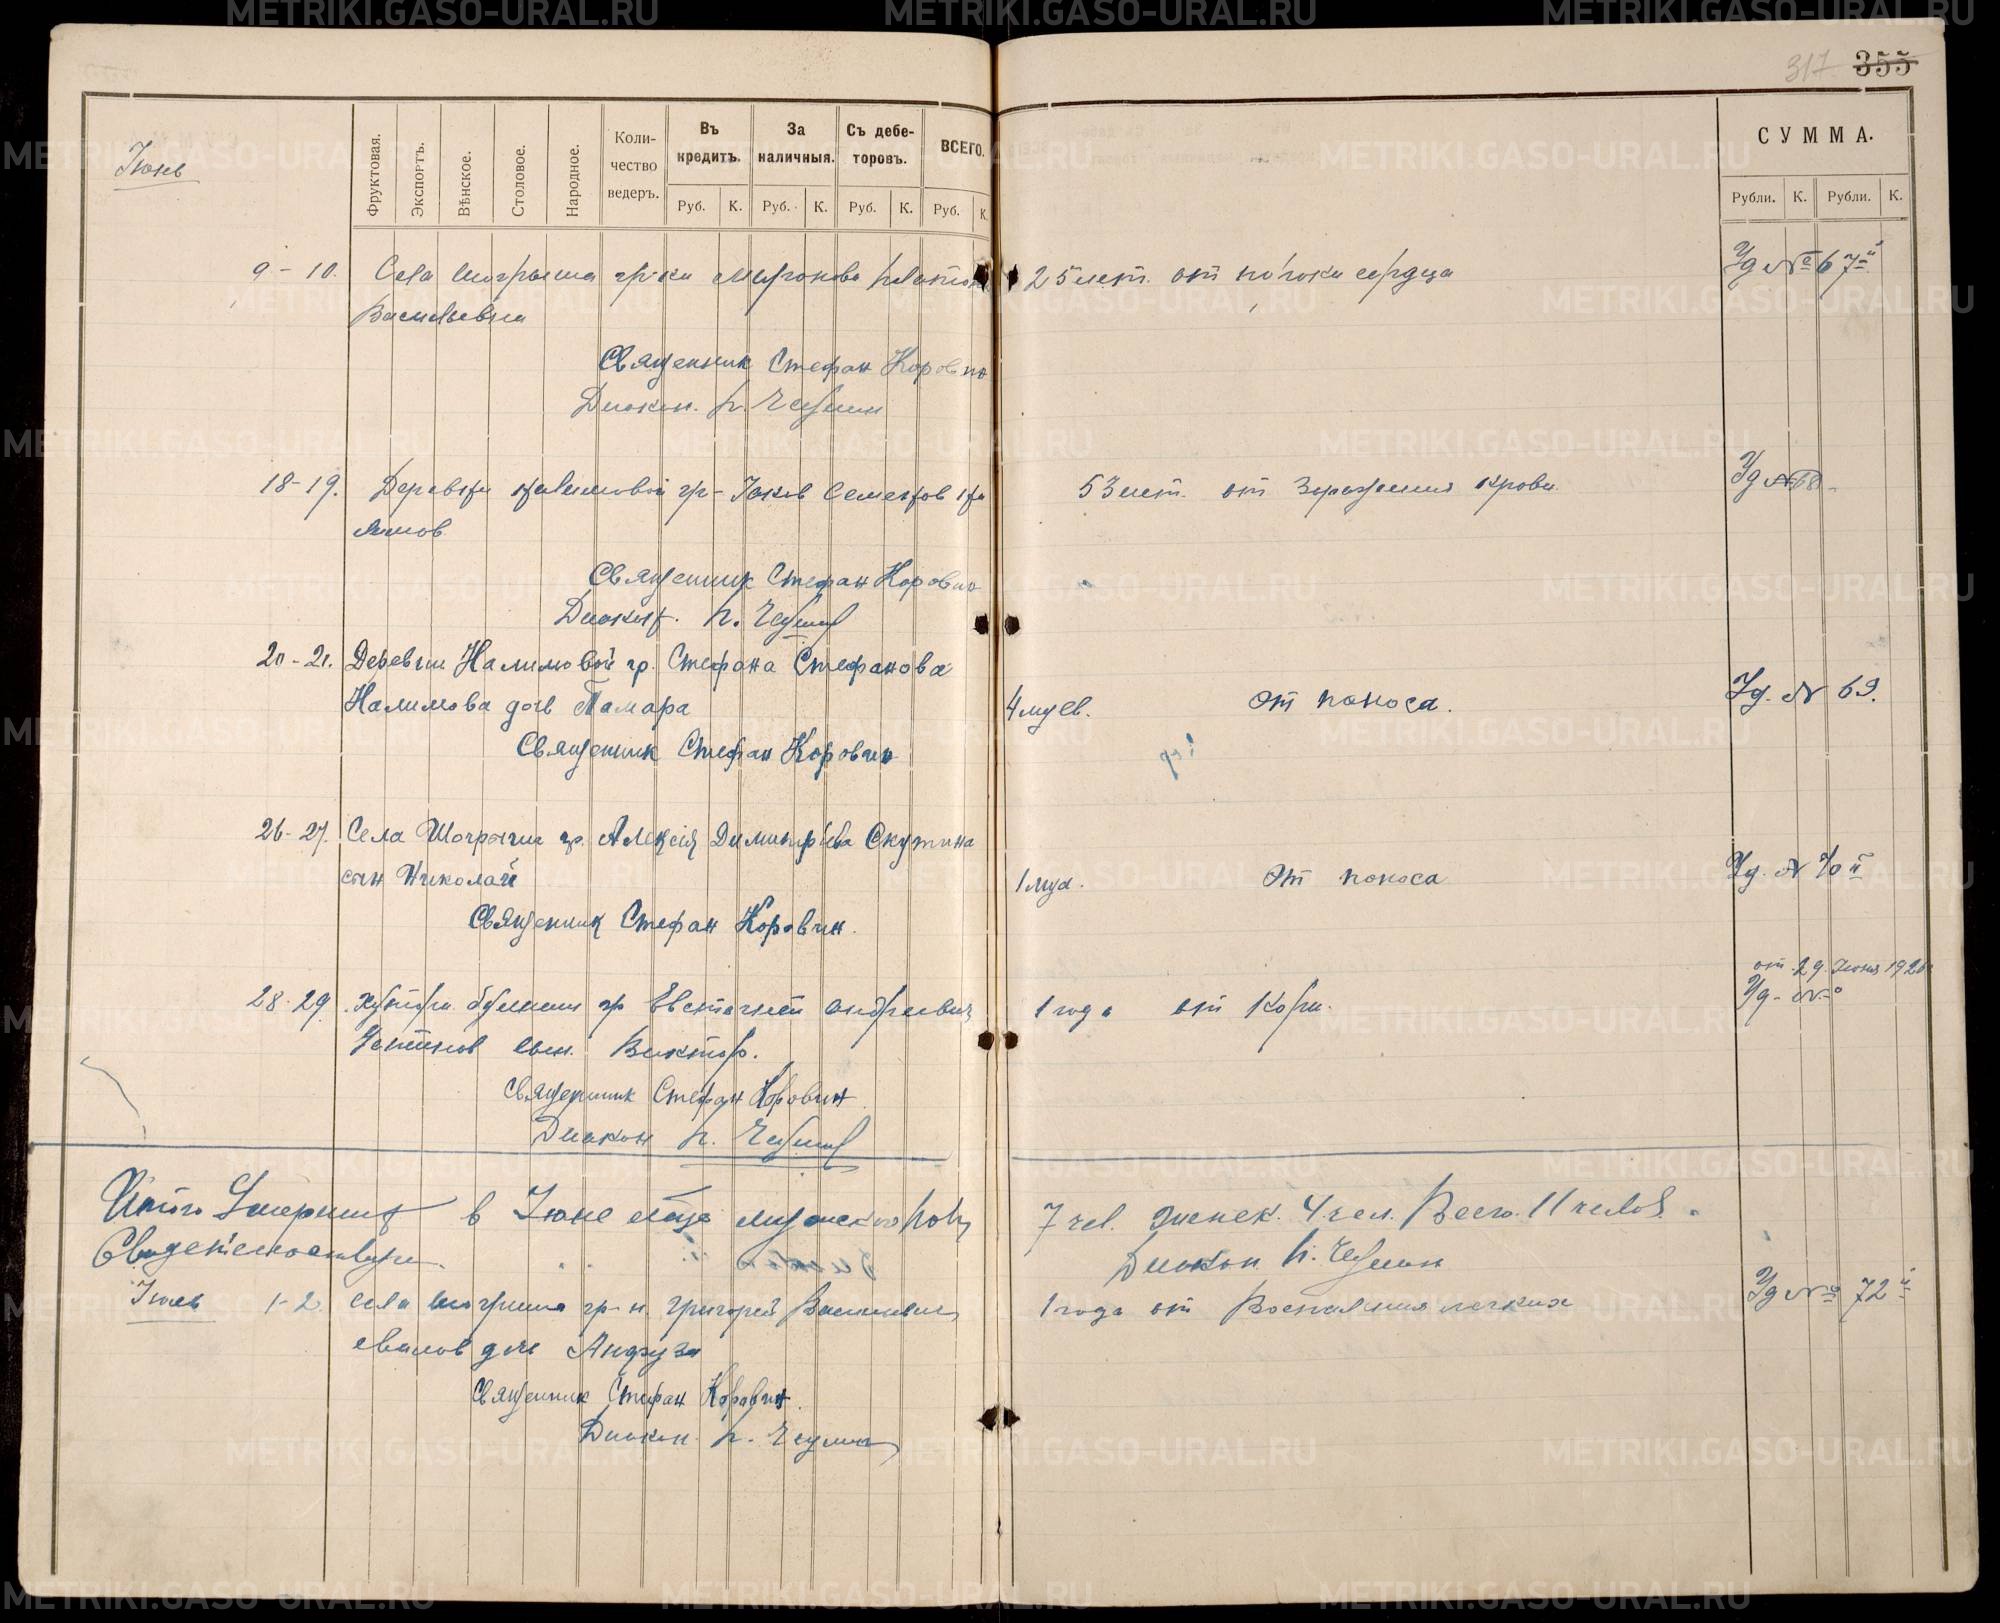 317 355
Фруктовая. Экспортъ. Вѣнское. Столовое. Народное. Количество ведеръ. Въ кредитъ. За наличныя. Съ дебеторовъ. ВСЕГО.
Руб. К. Руб. К. Руб. К. Руб. К.
СУММА.
Рубли. К. Рубли. К.
Іюнь
9-10. Села гр-ка Миронова 25 лет. от порока сердца Уд № 67й
Васильевна
Священник Стефан Коровин
Диакон. П.
18-19. Деревни Налимовой гр- Іаков Семенов На 53 лет. от Заражения крови Уд № 68
лимов
Священник Стефан Коровин
Диакон. П.
20-21. Деревни Налимовой гр. Стефана Стефанова
Налимова дочь Тамара 4 мцев. От поноса. Уд. № 69.
Священник Стефан Коровин
26-27. Села Шогрыша гр. Алексія Димитріева Скутина
сын Николай 1 мца. От поноса Уд. № 70й
Священник Стефан Коровин.
от 29. Июня 192
28-29. хутора гр Евстагней Андреевич 1 года от Кори. Уд- №
Устинов сын. Виктор.
Священник Стефан Коровин
Диакон П.
Итого Умерших в Іюне м-це мужеского пола 7 чел. женск. 4 чел. Всего. 11 челов.
Диакон П.
Іюль 1-2. села гр-н. Григорей Васильевич 1 года от Воспаления легких Уд № 72й
дочь
Священник Стефан Коровин.
Диакон. П.
METRIKI.GASO-URAL.RU